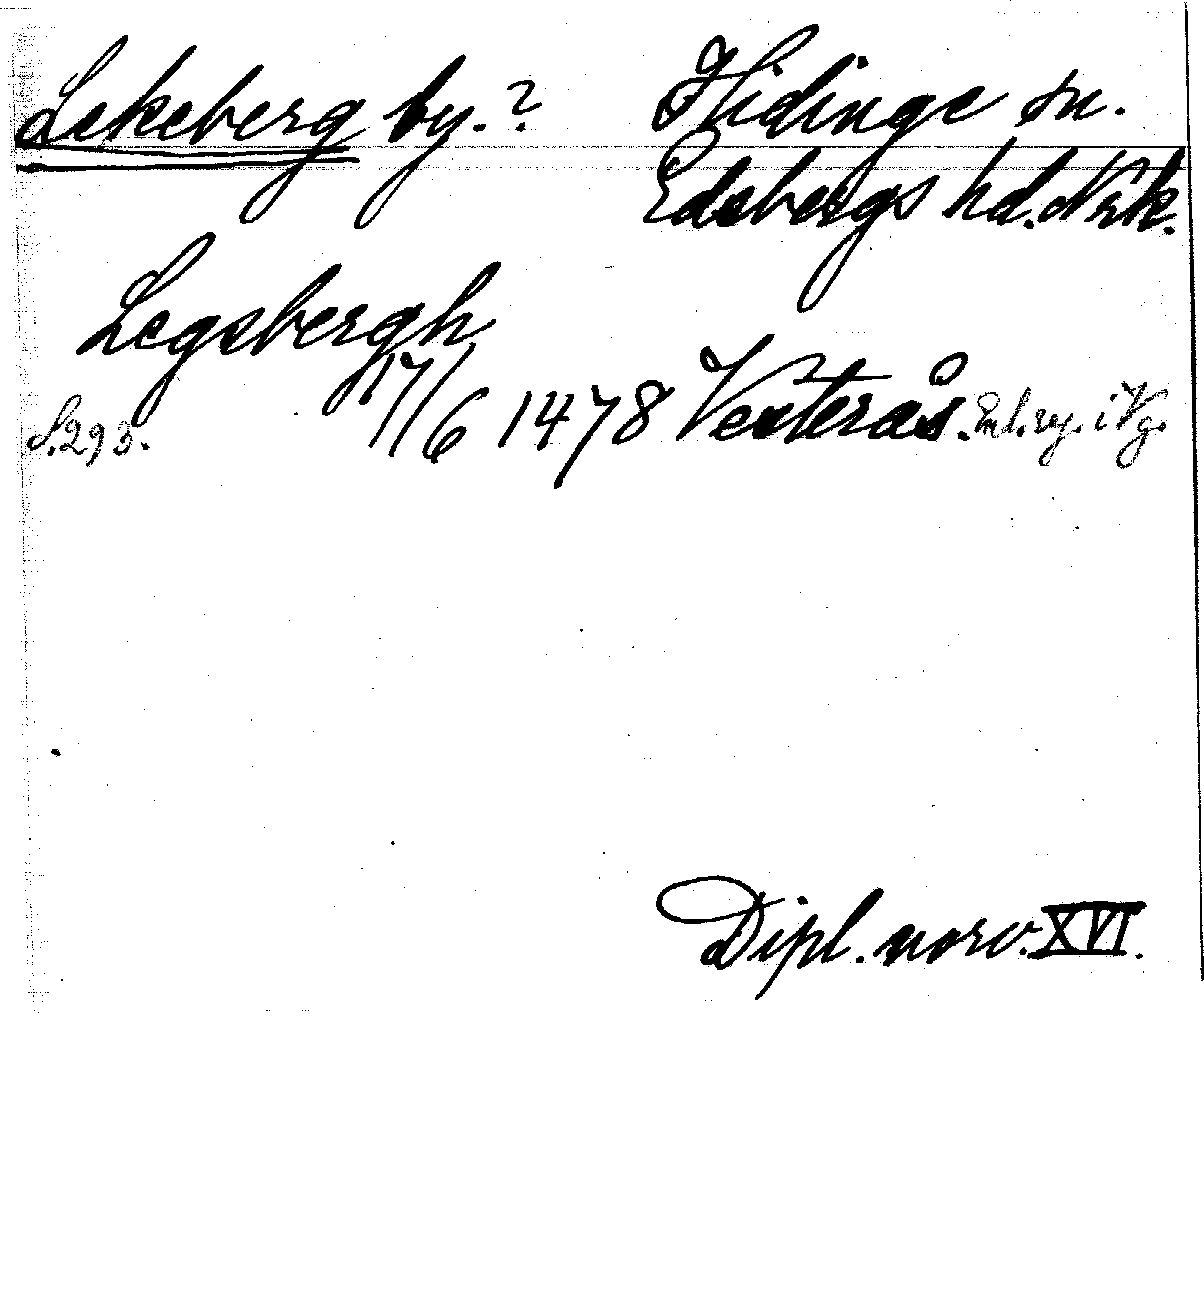 Lekeberg by.? Hidinge sn.
Edsbergs hd. Närk.
Legsbergh
S. 293. 17/6 1478 Vesterås. Enl. reg. i Vg.
Dipl. norv. XVI.